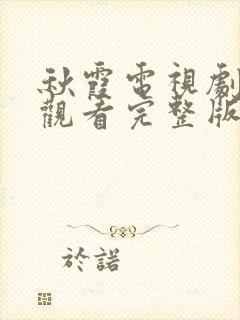 秋霞電視劇
觀看完整版
於諾